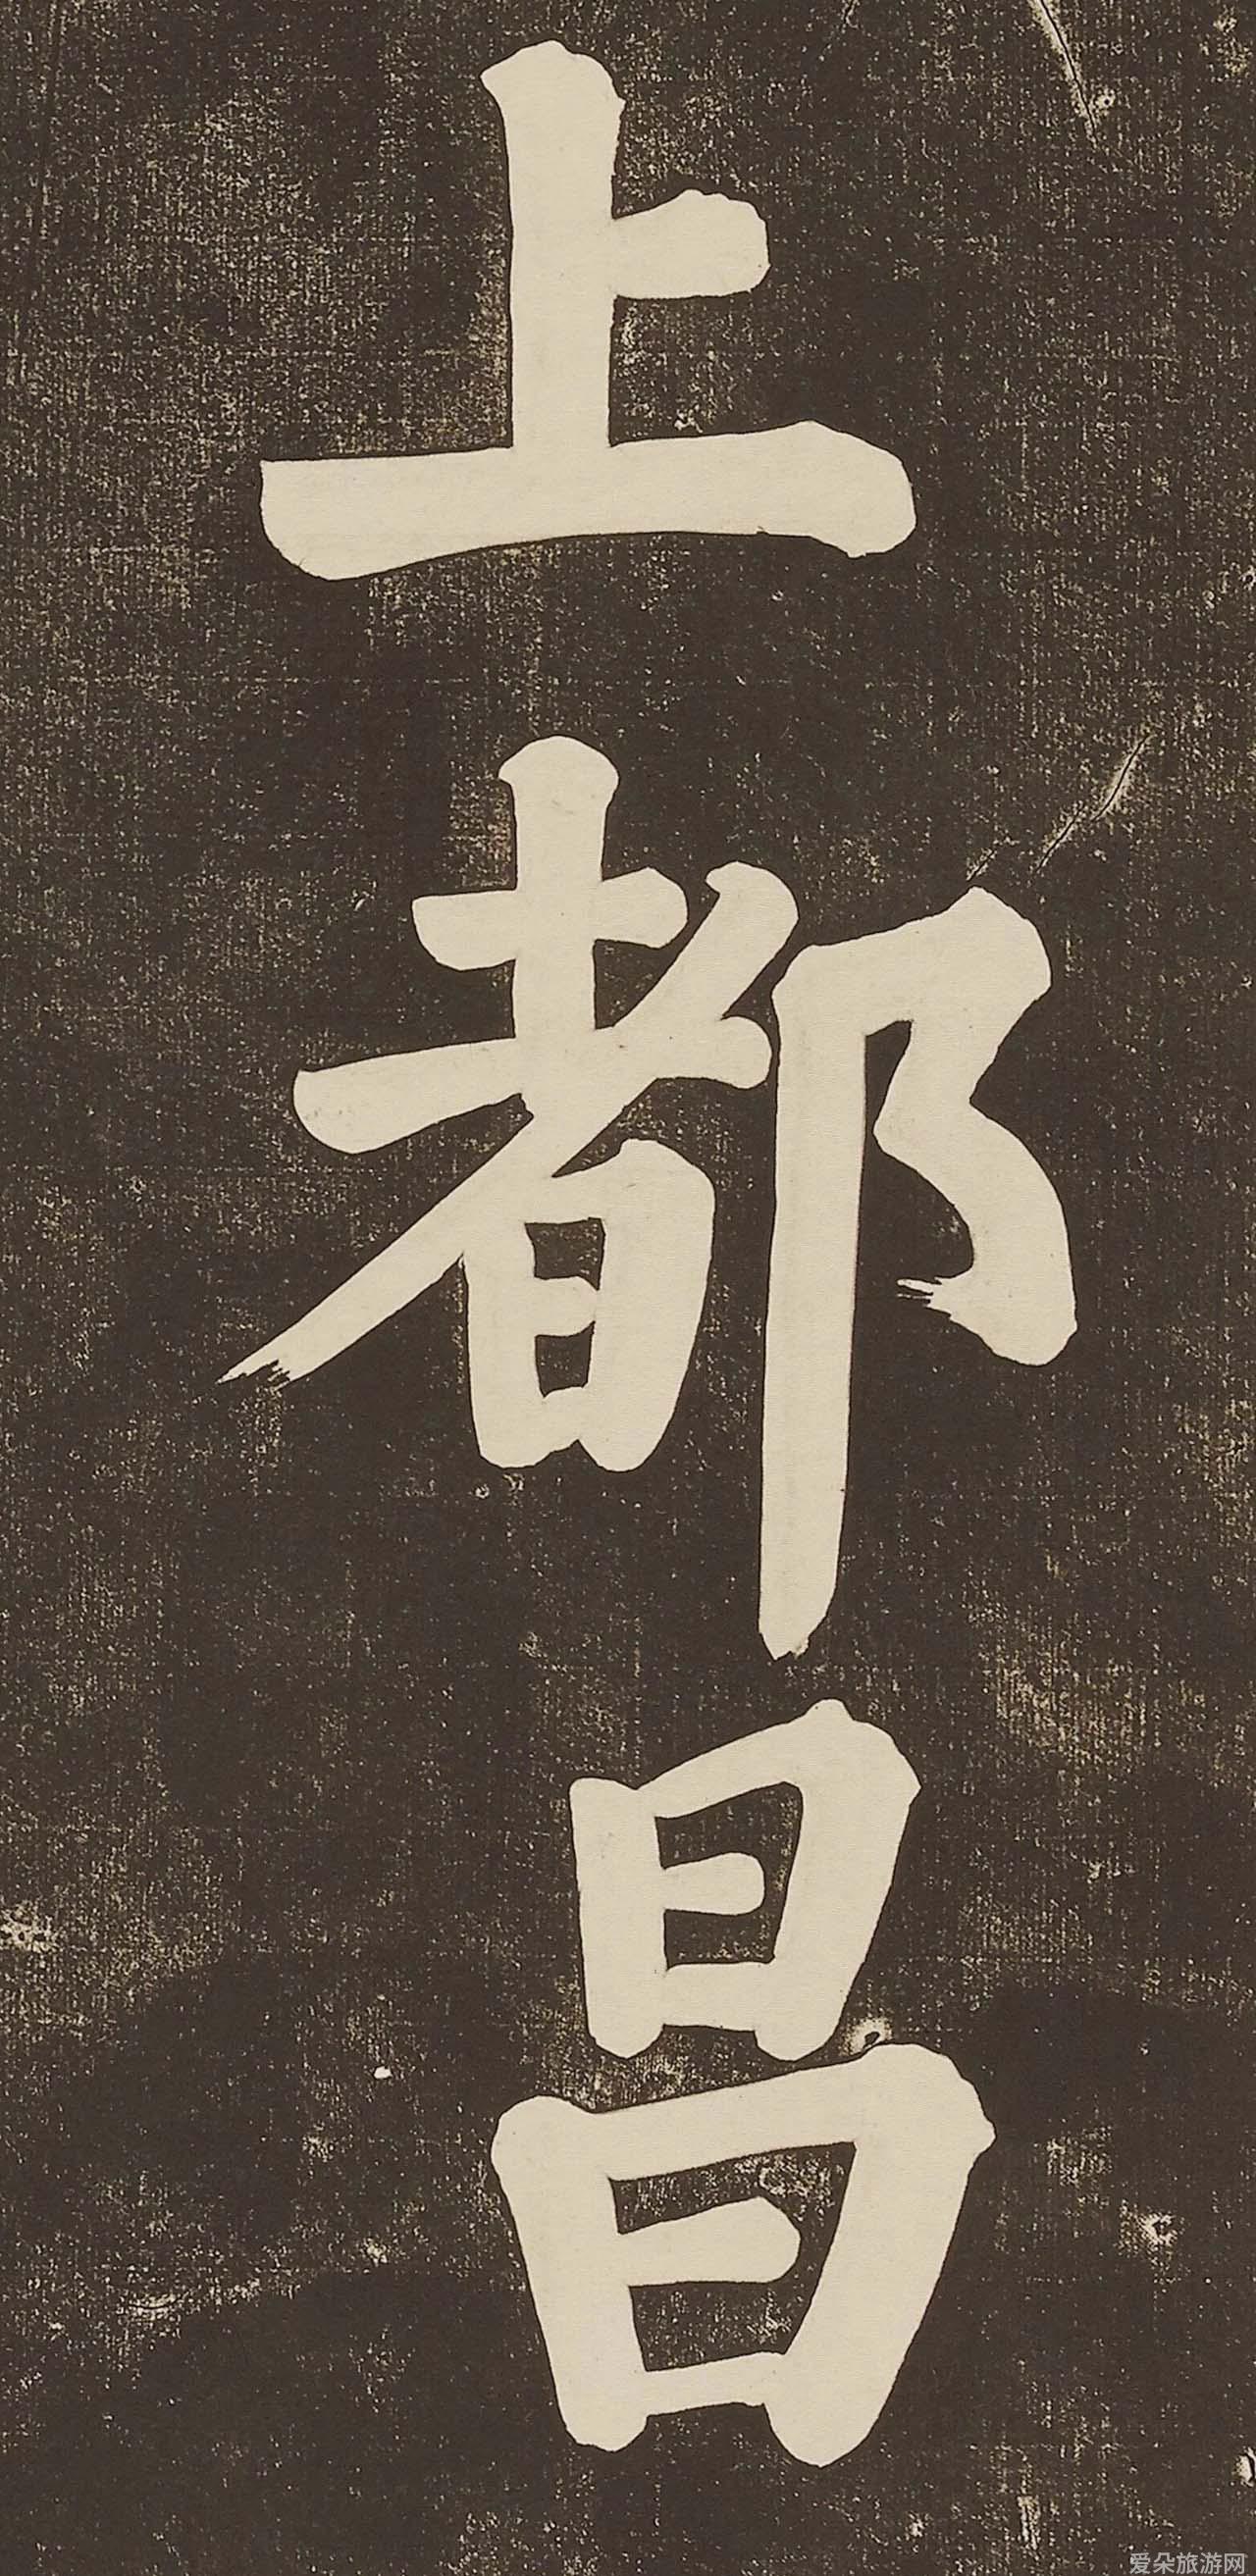 上都昌
爱朵旅游网